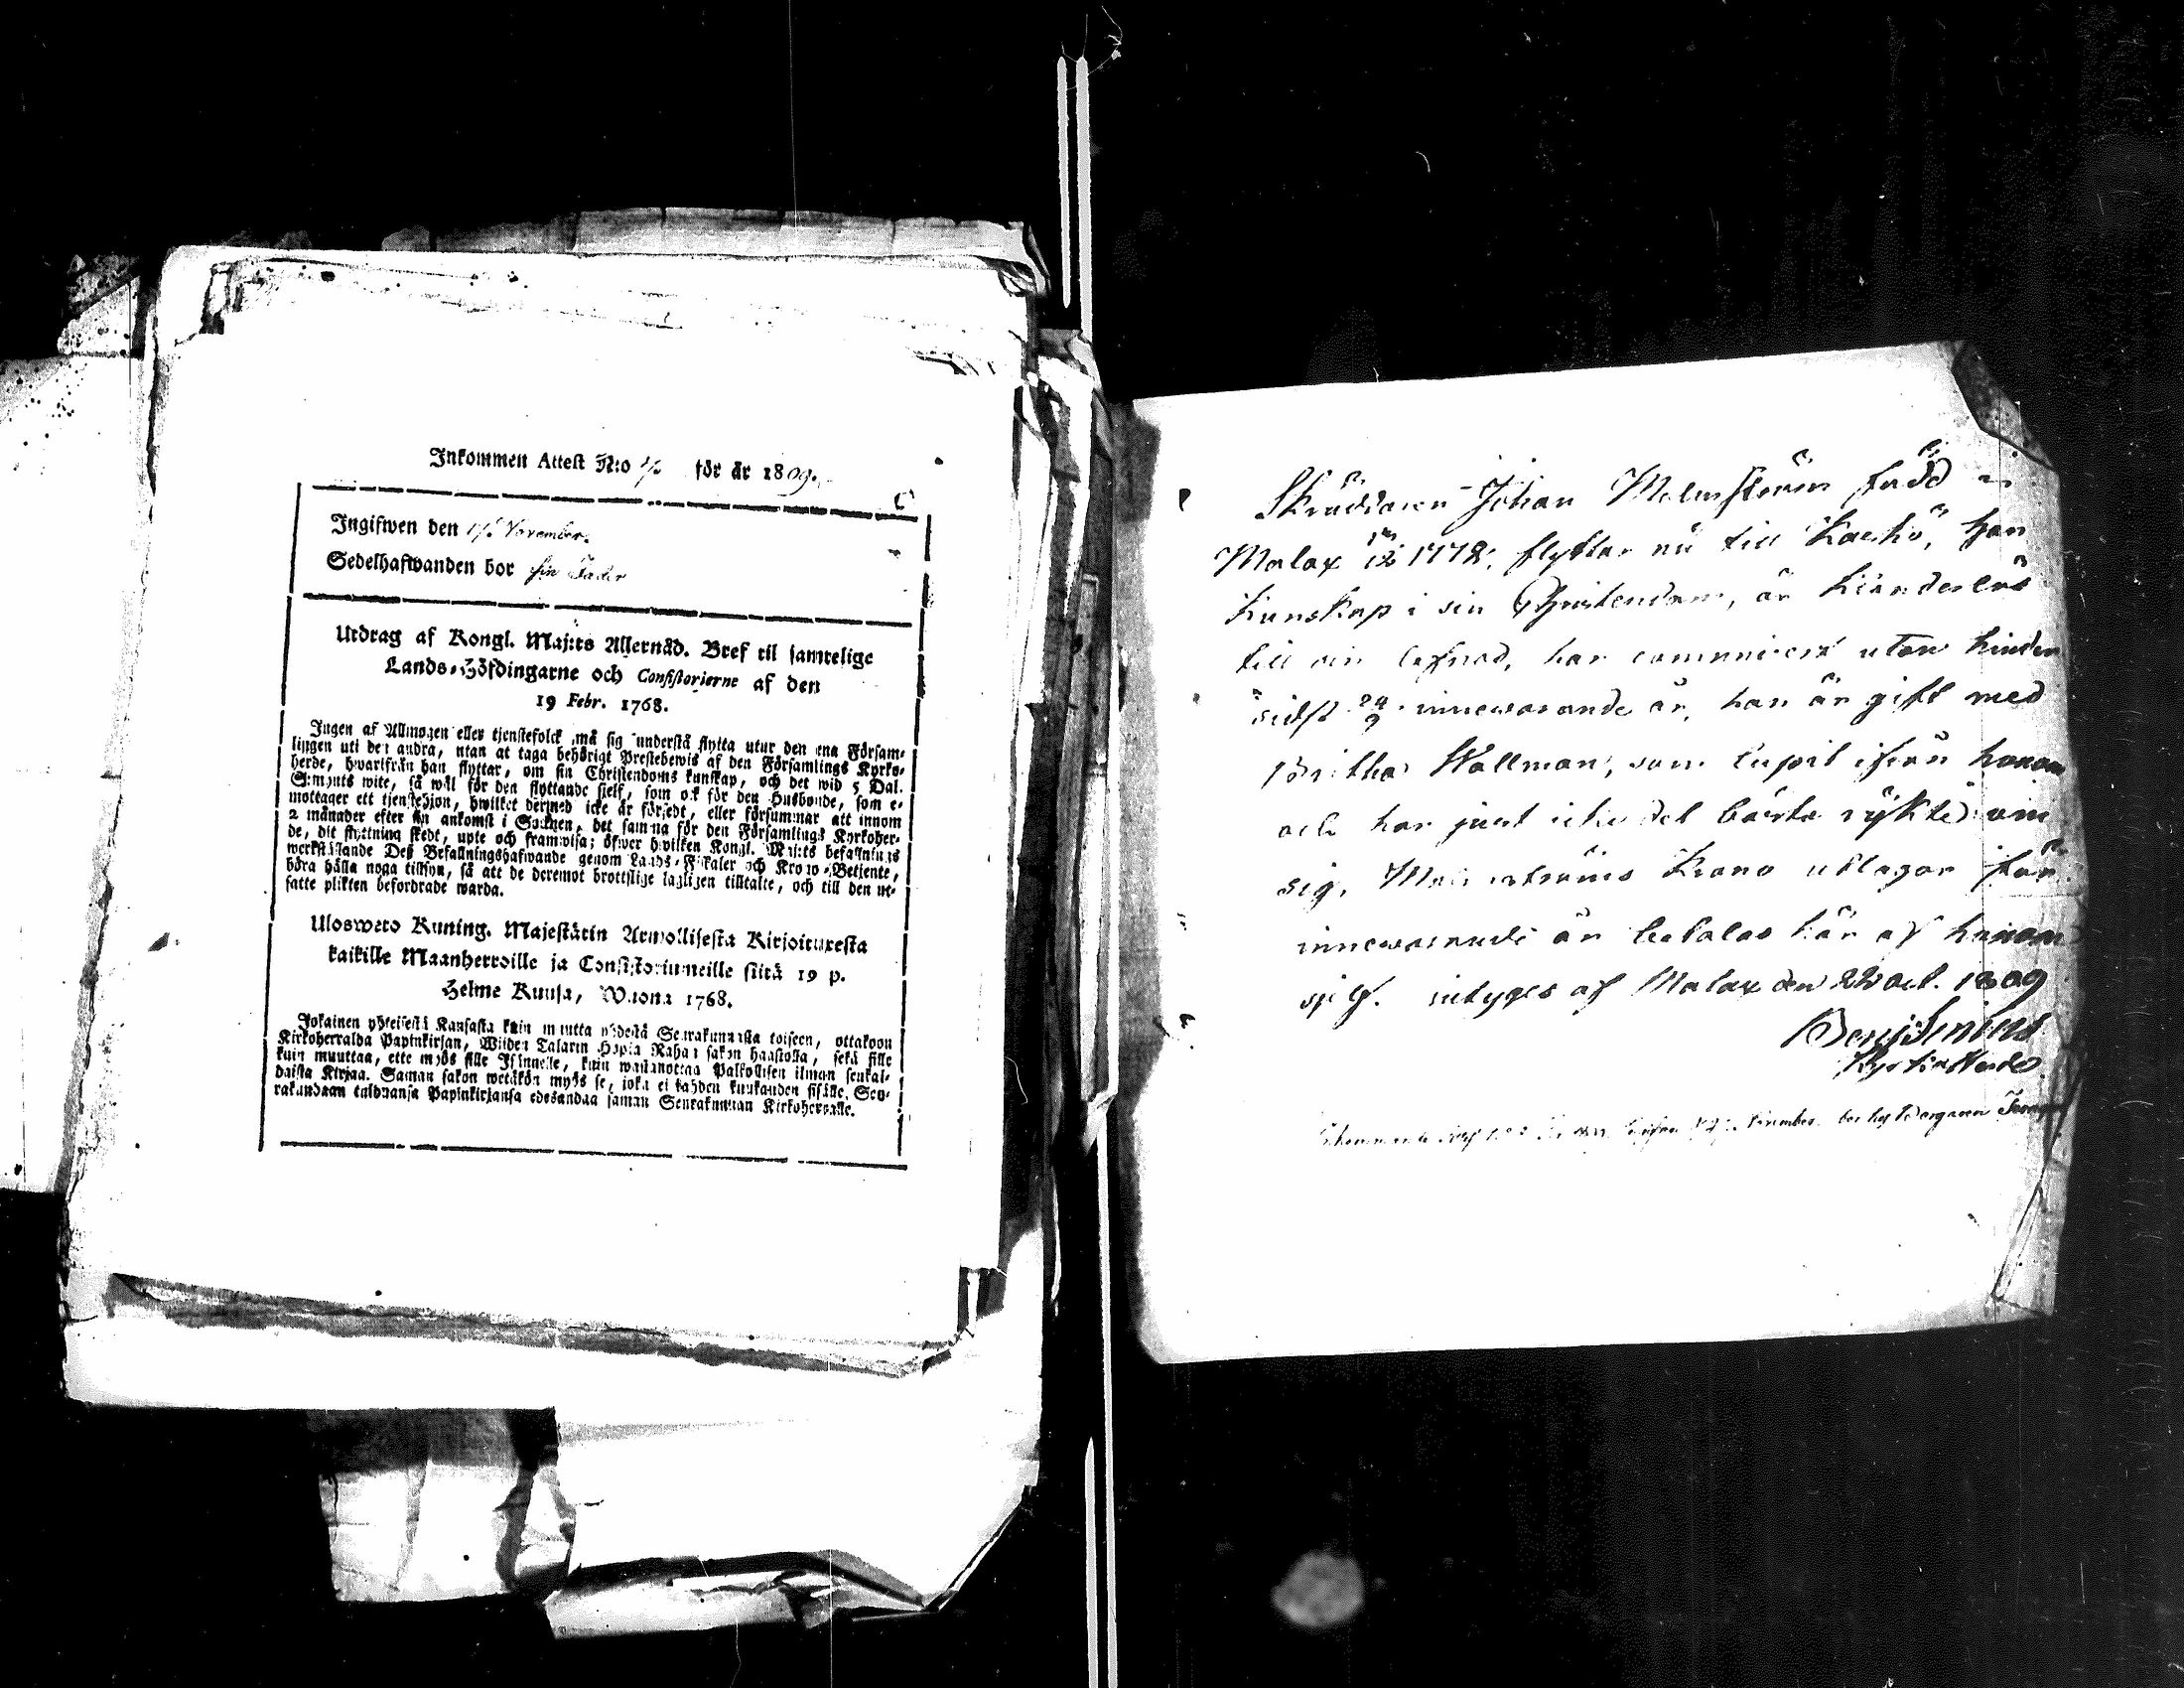 Inkommen Attest N:o för år 1809.
Ingifwen den November.
Sedelhafwanden bor sin Fader
Utdrag af Kongl. Maj:ts Allernåd. Bref til samtelige
Lands-Höfdingarne och Consistorierne af den
19 Febr. 1768.
Ingen af Allmogen eller tjenstefolck må sig understå flytta utur den ena Försam-
lingen uti den andra, utan at taga behörigt Prestebewis af den Församlings Kyrko-
herde, hwarifrån han flyttar, om sin Christendoms kunskap, och det wid 5 Dal.
S:mynts wite, så wäl för den flyttande sjelf, som ock för den Husbonde, som e-
mottager ett tjenstehjon, hwilket dermed icke är försedt, eller försummar att innom
2 månader efter sin ankomst i Socknen, det samma för den Församlings Kyrkoher-
de, dit flyttning skedt, upte och framwisa; öfwer hwilken Kongl. Maj:ts befallnings
werkställande Deß Befallningshafwande genom Lands-Fiskaler och Krono-Betjente,
böra hålla noga tillsyn, så att de deremot brottslige lagligen tilltalte, och till den ut-
satte plikten befordrade warda.
Uloswero Kuning. Majestätin Armollisesta Kirjoituxesta
kaikille Maanherroille ja Consistoriumeille siitä 19 p.
Helme Kuusa, Wuona 1768.
Jokainen yhteisestä Kansasta kuin muutta yhdestä Seurakunnasta toiseen, ottakoon
Kirkoherralda Papinkirjan, Wiiden Talarin Hopia Rahan sakon haastolla, sekä sille
kuin muuttaa, ette myös sille Isännelle, kuin wastanottaa Palkollisen ilman seukal-
daista Kirjaa. Saman sakon wetäkön myös se, joka ei kahden kuukauden sisälle, Seu-
rakundaan tulduansa Papinkirjansa edesandaa saman Seurakunnan Kirkoherralle.
Skräddaren Johan Malmström född i
Malax 1772, flyttar nu till Kaskö, har
Kunskap i sin Christendom, är klanderlös
till sin lefnad, har communicerat utan hinder
sidst 24/9 innewarande år, han är gift med
Britha Wallman, som lupit ifrån honom
och har just icke det bästa rykte om
sig, Malmströms Krono utlagor för
innewarande år betalas här af honom
sjelf. intygas af Malax den 22 oct. 1809
Kyrkoherde
November